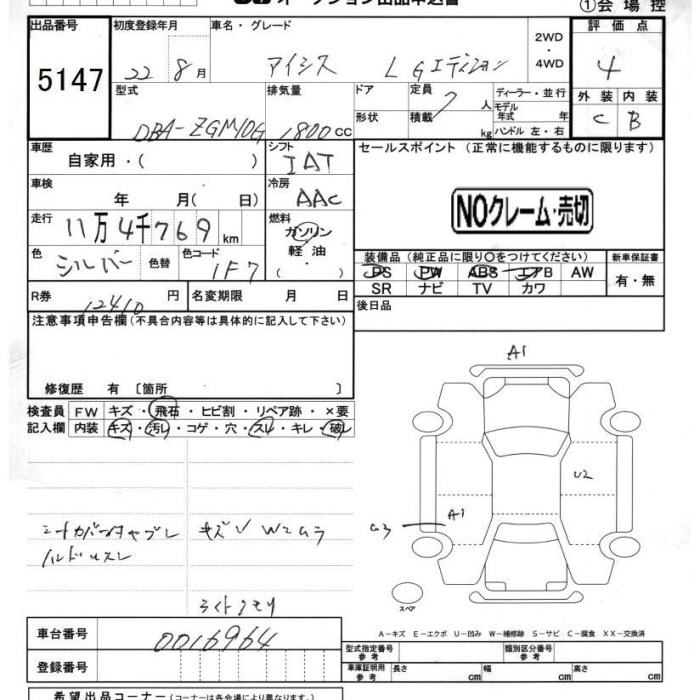 オークション出品申込書 ①会場控
出品番号 初度登録年月 車名・グレード 2WD・4WD 評価点
5147 22年8月 アイシス L Gエディション 4
型式 排気量 ドア 定員 7人 ディーラー・並行 外装 内装
DBA-ZGM10G 1800cc 形状 積載 kg モデル年式 年 C B
ハンドル 左・右
車歴 シフト セールスポイント (正常に機能するものに限ります)
自家用・( ) IAT
車検 年 月( 日) 冷房 AAC
NOクレーム・売切
走行 11万4千769km 燃料 ガソリン
軽油・( )
色 シルバー 色替 色コード 1F7
装備品 (純正品に限り○をつけてください) 新車保証書
PS PW ABS エアB AW 有・無
SR ナビ TV カワ
R券 12410円 名変期限 月 日 後日品
注意事項申告欄(不具合内容等は具体的に記入して下さい)
修復歴 有 〔箇所 〕
検査員 FW キズ・飛石・ヒビ割・リペア跡・×要
記入欄 内装 キズ・汚レ・コゲ・穴・スレ・キレ・破レ
A1
U2
A1
G3
スペア
シートカバー
ハンドルスレ
キズ W2ムラ
ライトクモリ
A-キズ E-エクボ U-凹み W-補修跡 S-サビ C-腐食 XX-交換済
車台番号 0016964
登録番号
型式指定番号 参考 類別区分番号 参考
車庫証明用 参考 長さ cm 幅 cm 高さ cm
希望出品コーナー (コーナーは各会場により異なります。)